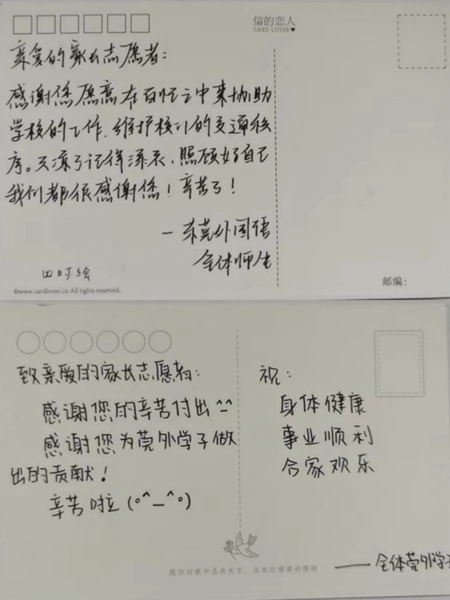 信的恋人
CARD LOVER♥
亲爱的家长志愿者：
感谢您愿意在百忙之中来协助
学校的工作，维护校门的交通秩
序。天凉了记得添衣，照顾好自己
我们都很感谢您！辛苦了！
—东莞外国语
全体师生
四时绘
©www.cardlover.cn All rights reserved.
邮编：
致亲爱的家长志愿者：
感谢您的辛苦付出^-^
感谢您为莞外学子做
出的贡献！
辛苦啦(°^_^°)
祝：
身体健康
事业顺利
合家欢乐
——全体莞外学子